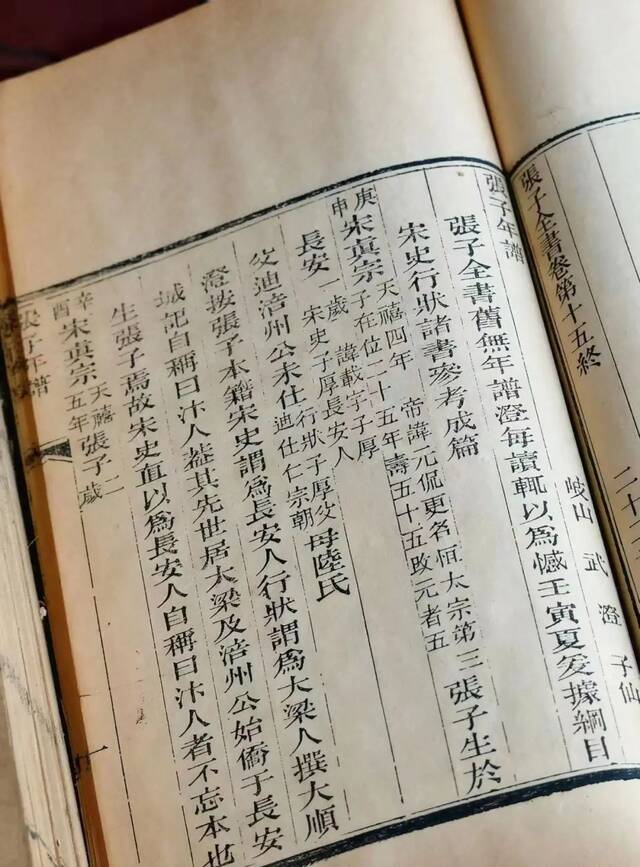 張子全書卷第十五終
張子年譜
岐山 武 澄 子仙
張子全書舊無年譜澄每讀輒以爲憾壬寅夏爰據綱目
宋史行狀諸書參考成篇
庚申 宋眞宗 天禧四年 帝諱元侃更名恒太宗第三子在位二十五年壽五十五改元者五 張子生於
長安 一歲 諱載字子厚 宋史子厚長安人
父迪涪州公未仕 行狀子厚父迪仕仁宗朝 母陸氏
澄按張子本籍宋史謂爲長安人行狀謂爲大梁人撰大順
城記自稱曰汴人蓋其先世居大梁及涪州公始僑于長安
生張子焉故宋史直以爲長安人自稱曰汴人者不忘本也
辛酉 宋眞宗 天禧五年 張子二歲
張子年譜
一